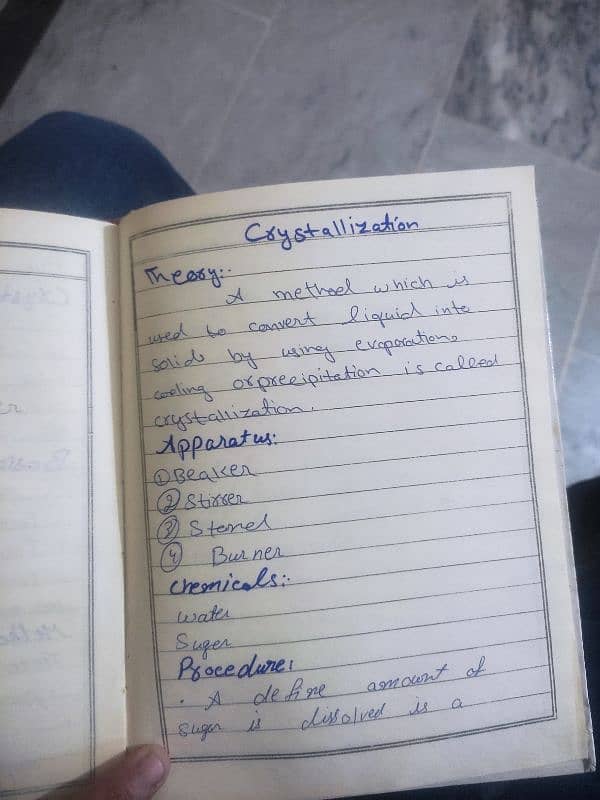 Crystallization
Theory:-
A method which is
used to convert liquid into
solid by using evaporation,
cooling or precipitation is called
crystallization.
Apparatus:
① Beaker
② Stirrer
③ Stened
④ Burner
Chemicals:-
Water
Suger
Procedure:
. A define amount of
suger is dissolved is a